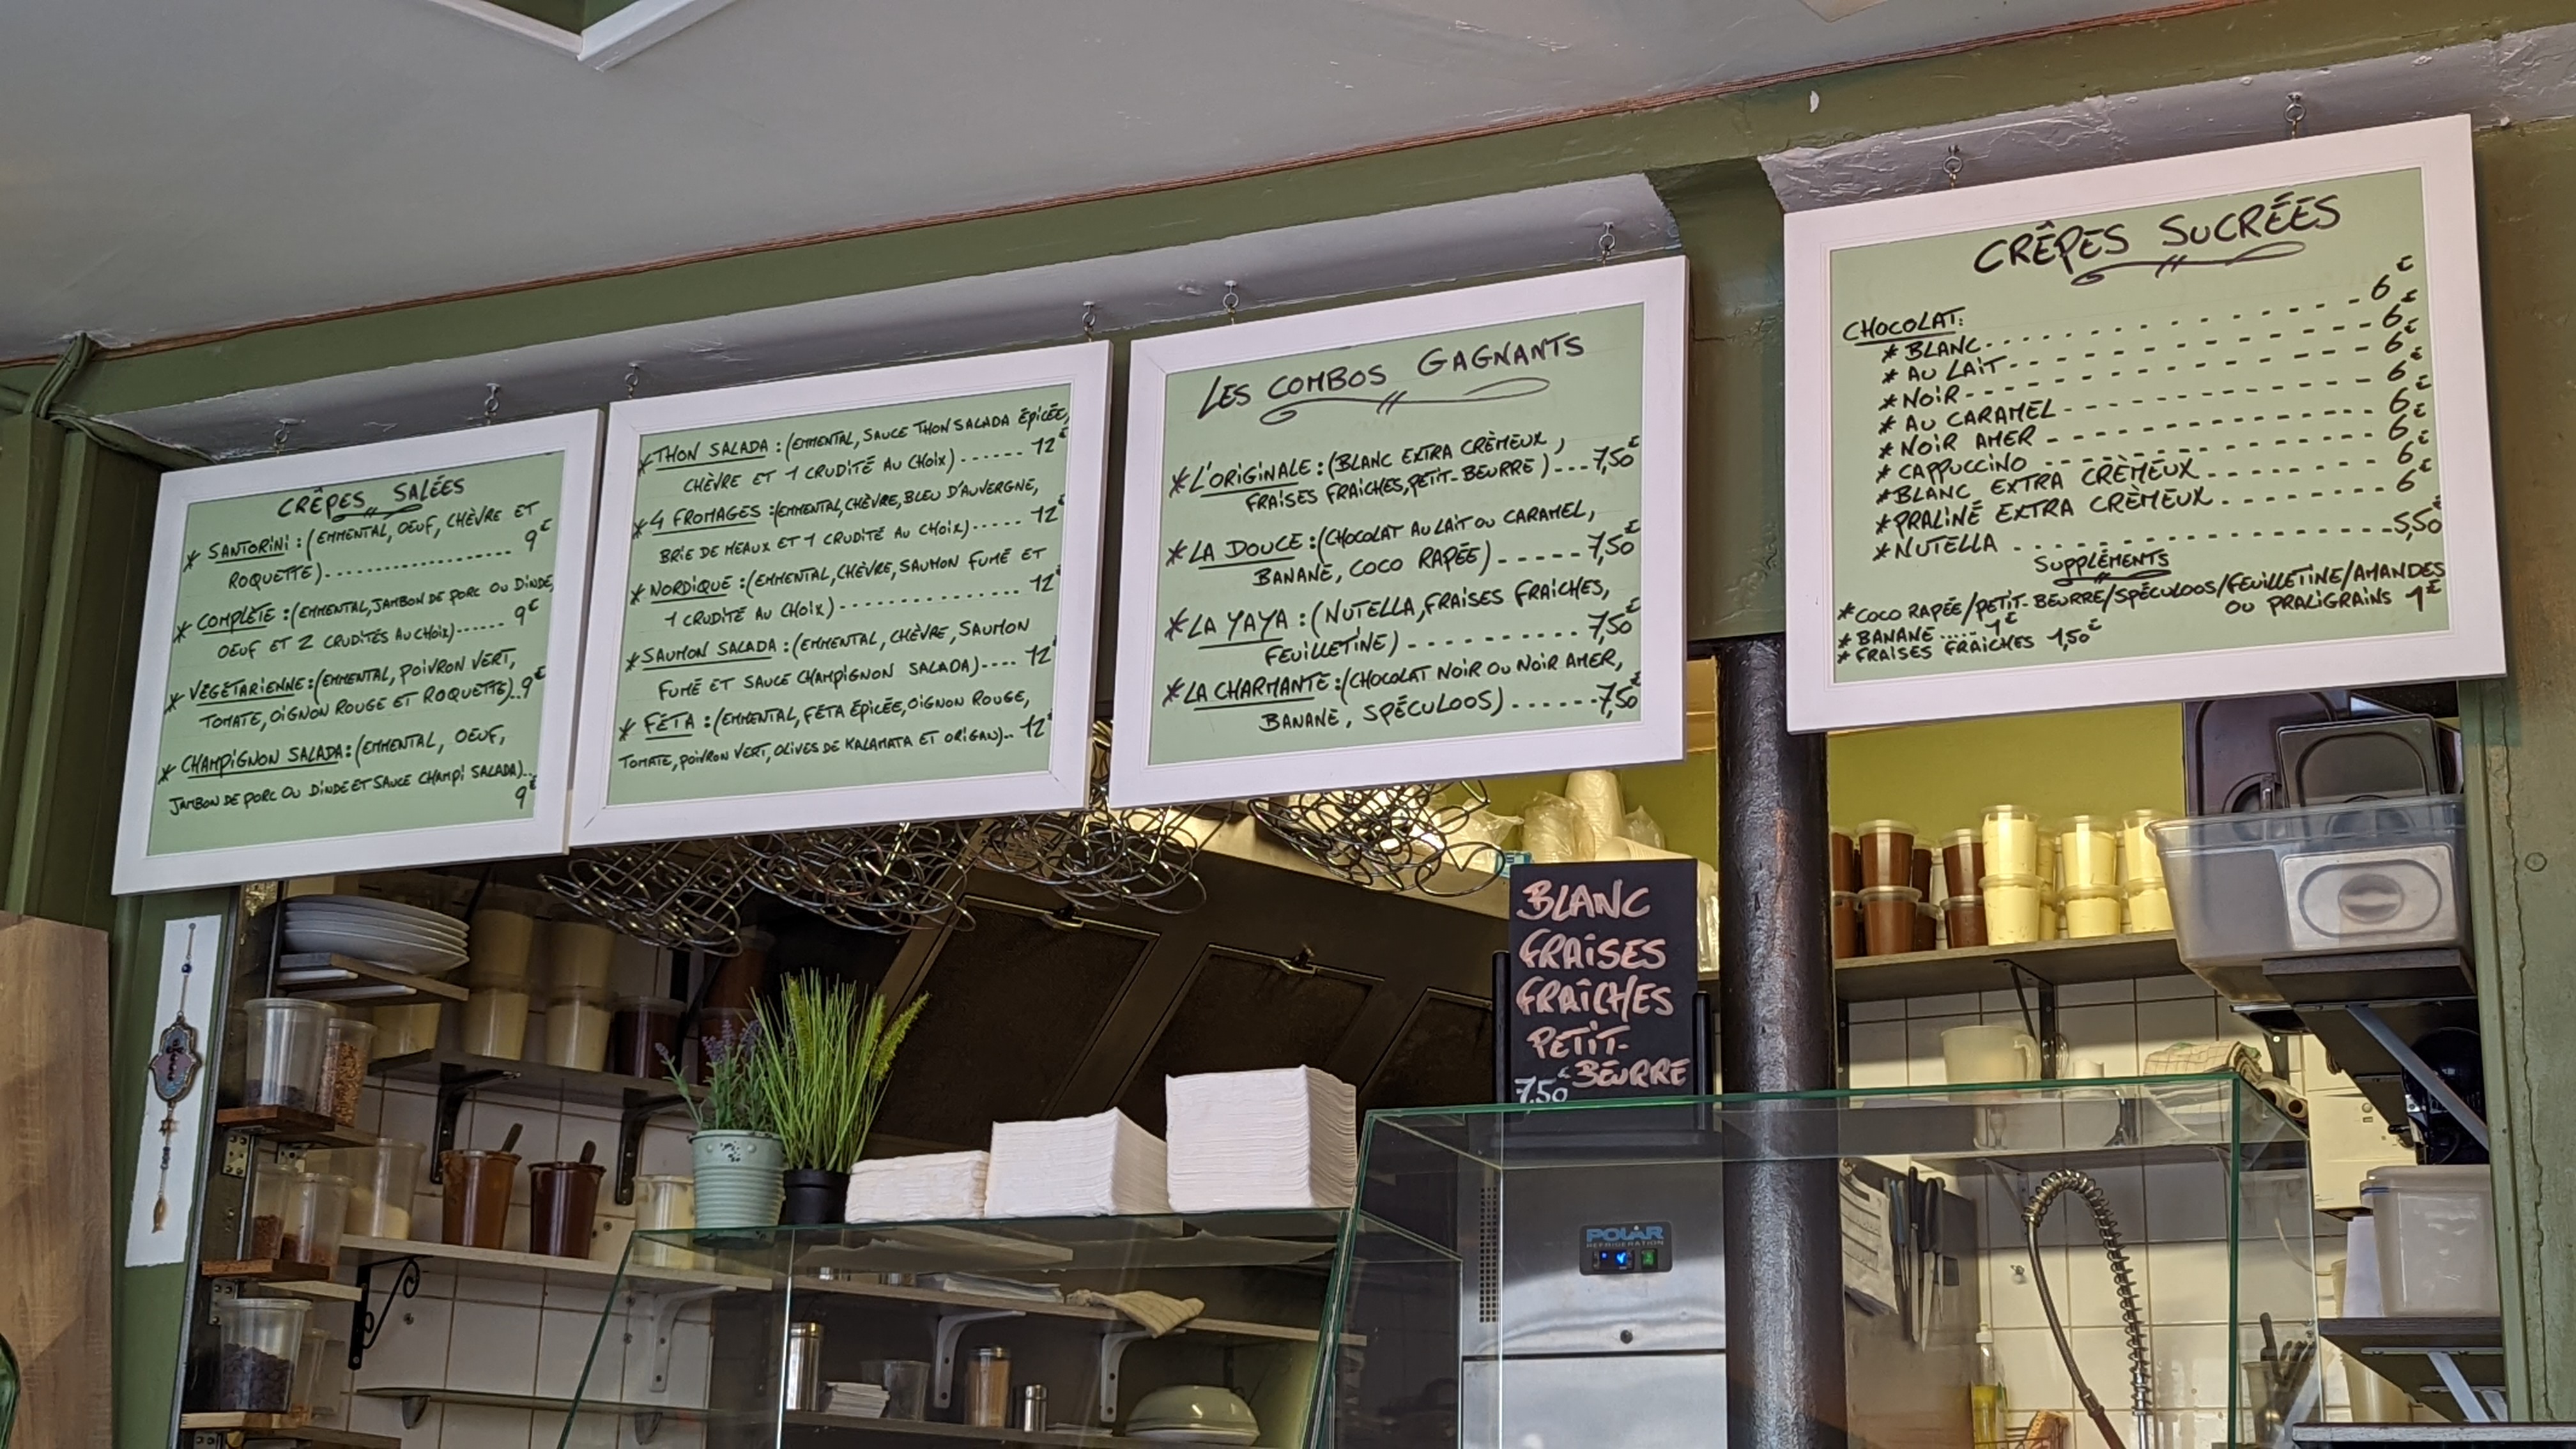 CRÊPES SALÉES
* SANTORINI : (EMMENTAL, OEUF, CHÈVRE ET
ROQUETTE)..................... 9€
* COMPLÈTE : (EMMENTAL, JAMBON DE PORC OU DINDE,
OEUF ET 2 CRUDITÉS AU CHOIX)...... 9€
* VÉGÉTARIENNE : (EMMENTAL, POIVRON VERT,
TOMATE, OIGNON ROUGE ET ROQUETTE)..9€
* CHAMPIGNON SALADA : (EMMENTAL, OEUF,
JAMBON DE PORC OU DINDE ET SAUCE CHAMPI SALADA)..
9€
* THON SALADA : (EMMENTAL, SAUCE THON SALADA ÉPICÉE,
CHÈVRE ET 1 CRUDITÉ AU CHOIX) ...... 12€
* 4 FROMAGES : (EMMENTAL, CHÈVRE, BLEU D'AUVERGNE,
BRIE DE MEAUX ET 1 CRUDITÉ AU CHOIX)..... 12€
* NORDIQUE : (EMMENTAL, CHÈVRE, SAUMON FUMÉ ET
1 CRUDITÉ AU CHOIX)............... 12€
* SAUMON SALADA : (EMMENTAL, CHÈVRE, SAUMON
FUMÉ ET SAUCE CHAMPIGNON SALADA).... 12€
* FÉTA : (EMMENTAL, FÉTA ÉPICÉE, OIGNON ROUGE,
TOMATE, POIVRON VERT, OLIVES DE KALAMATA ET ORIGAN).. 12€
LES COMBOS GAGNANTS
* L'ORIGINALE : (BLANC EXTRA CRÈMEUX,
FRAISES FRAICHES, PETIT-BEURRE)...7,50€
* LA DOUCE : (CHOCOLAT AU LAIT OU CARAMEL,
BANANE, COCO RAPÉE) ......7,50€
* LA YAYA : (NUTELLA, FRAISES FRAICHES,
FEUILLETINE) ........... 7,50€
* LA CHARMANTE : (CHOCOLAT NOIR OU NOIR AMER,
BANANE, SPÉCULOOS) .......7,50€
CRÊPES SUCRÉES
CHOCOLAT:
* BLANC.................... 6€
* AU LAIT.................. 6€
* NOIR..................... 6€
* AU CARAMEL............... 6€
* NOIR AMER................ 6€
* CAPPUCCINO............... 6€
* BLANC EXTRA CRÈMEUX...... 6€
* PRALINÉ EXTRA CRÈMEUX.... 6€
* NUTELLA..................5,50€
SUPPLÉMENTS
* COCO RAPÉE/PETIT-BEURRE/SPÉCULOOS/FEUILLETINE/AMANDES
OU PRALIGRAINS 1€
* BANANE..... 1€
* FRAISES FRAICHES 1,50€
BLANC
FRAISES
FRAÎCHES
PETIT-
BEURRE
7,50€
POLAR
REFRIGERATION